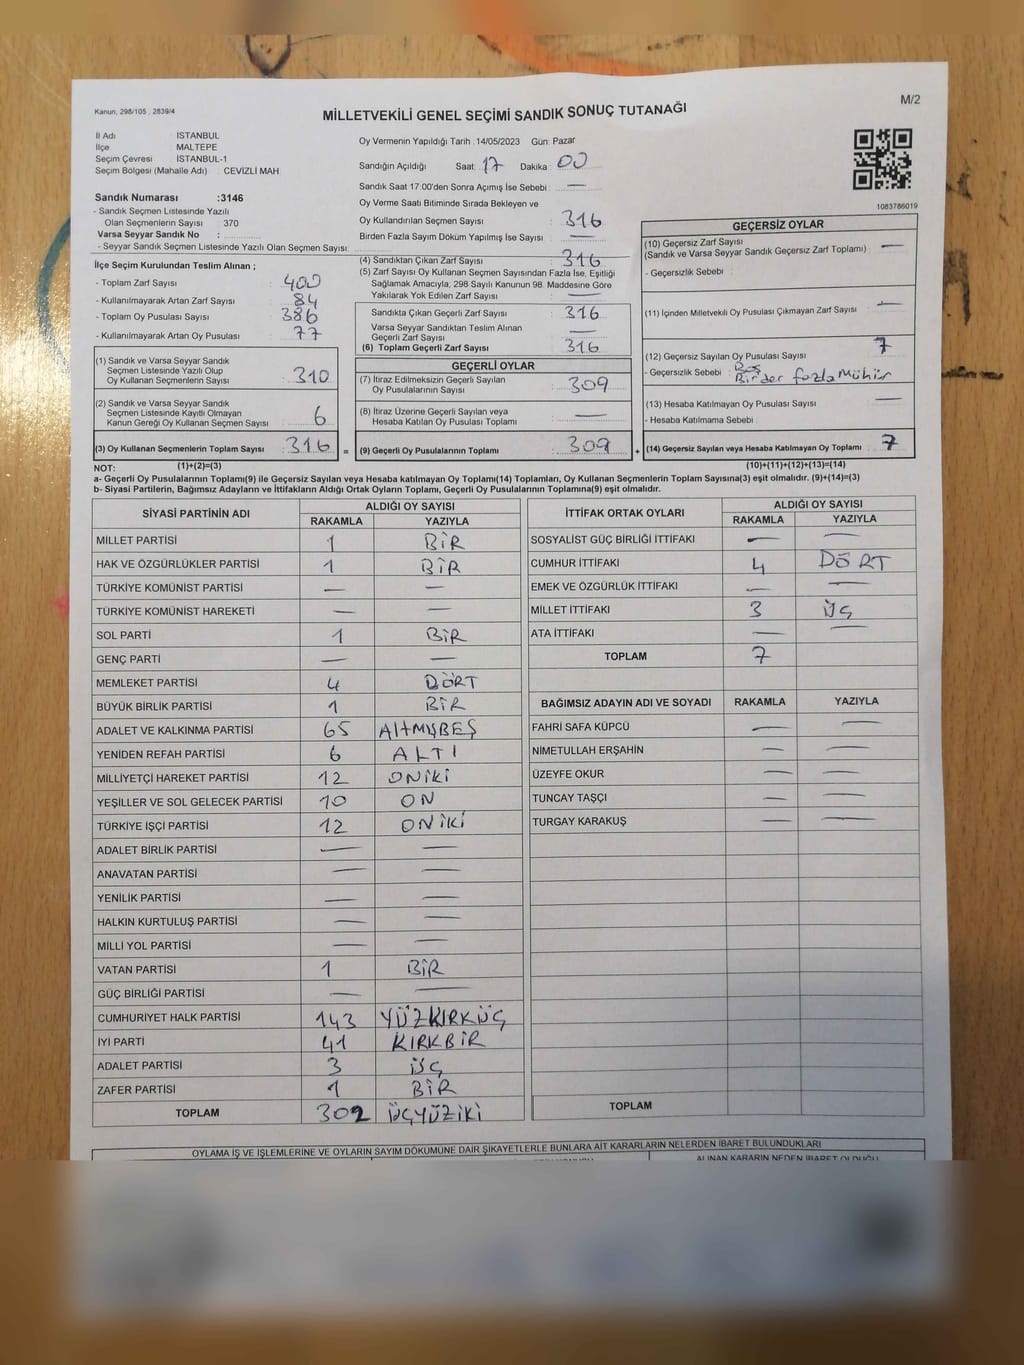 Kanun; 298/105 , 2839/4
MİLLETVEKİLİ GENEL SEÇİMİ SANDIK SONUÇ TUTANAĞI
M/2
İl Adı : İSTANBUL
İlçe MALTEPE
Seçim Çevresi : İSTANBUL-1
Seçim Bölgesi (Mahalle Adı) : CEVİZLİ MAH.
Sandık Numarası :3146
- Sandık Seçmen Listesinde Yazılı
Olan Seçmenlerin Sayısı : 370
Varsa Seyyar Sandık No :
- Seyyar Sandık Seçmen Listesinde Yazılı Olan Seçmen Sayısı:
Oy Vermenin Yapıldığı Tarih :14/05/2023 Gün: Pazar
Sandığın Açıldığı Saat: 17 Dakika: 00
Sandık Saat 17:00'den Sonra Açımış İse Sebebi : —
Oy Verme Saati Bitiminde Sırada Bekleyen ve
Oy Kullandırılan Seçmen Sayısı : 316
Birden Fazla Sayım Döküm Yapılmış İse Sayısı : —
1083786019
İlçe Seçim Kurulundan Teslim Alınan ;
- Toplam Zarf Sayısı : 400
- Kullanılmayarak Artan Zarf Sayısı : 84
- Toplam Oy Pusulası Sayısı : 386
- Kullanılmayarak Artan Oy Pusulası : 77
(1) Sandık ve Varsa Seyyar Sandık
Seçmen Listesinde Yazılı Olup
Oy Kullanan Seçmenlerin Sayısı : 310
(2) Sandık ve Varsa Seyyar Sandık
Seçmen Listesinde Kayıtlı Olmayan
Kanun Gereği Oy Kullanan Seçmen Sayısı : 6
(3) Oy Kullanan Seçmenlerin Toplam Sayısı : 316 =
(4) Sandıktan Çıkan Zarf Sayısı : 316
(5) Zarf Sayısı Oy Kullanan Seçmen Sayısından Fazla İse, Eşitliği
Sağlamak Amacıyla, 298 Sayılı Kanunun 98. Maddesine Göre
Yakılarak Yok Edilen Zarf Sayısı : —
Sandıkta Çıkan Geçerli Zarf Sayısı : 316
Varsa Seyyar Sandıktan Teslim Alınan
Geçerli Zarf Sayısı : —
(6) Toplam Geçerli Zarf Sayısı : 316
GEÇERLİ OYLAR
(7) İtiraz Edilmeksizin Geçerli Sayılan
Oy Pusulalarının Sayısı : 309
(8) İtiraz Üzerine Geçerli Sayılan veya
Hesaba Katılan Oy Pusulası Toplamı : —
(9) Geçerli Oy Pusulalarının Toplamı : 309 +
GEÇERSİZ OYLAR
(10) Geçersiz Zarf Sayısı
(Sandık ve Varsa Seyyar Sandık Geçersiz Zarf Toplamı) : —
- Geçersizlik Sebebi :
(11) İçinden Milletvekili Oy Pusulası Çıkmayan Zarf Sayısı : —
(12) Geçersiz Sayılan Oy Pusulası Sayısı : 7
- Geçersizlik Sebebi : Boş
Birden fazla Mühür
(13) Hesaba Katılmayan Oy Pusulası Sayısı : —
- Hesaba Katılmama Sebebi :
(14) Geçersiz Sayılan veya Hesaba Katılmayan Oy Toplamı : 7
NOT: (1)+(2)=(3) (10)+(11)+(12)+(13)=(14)
a- Geçerli Oy Pusulalarının Toplamı(9) ile Geçersiz Sayılan veya Hesaba katılmayan Oy Toplamı(14) Toplamları, Oy Kullanan Seçmenlerin Toplam Sayısına(3) eşit olmalıdır. (9)+(14)=(3)
b- Siyasi Partilerin, Bağımsız Adayların ve İttifakların Aldığı Ortak Oyların Toplamı, Geçerli Oy Pusulalarının Toplamına(9) eşit olmalıdır.
SİYASİ PARTİNİN ADI ALDIĞI OY SAYISI
RAKAMLA YAZIYLA
MİLLET PARTİSİ 1 BİR
HAK VE ÖZGÜRLÜKLER PARTİSİ 1 BİR
TÜRKİYE KOMÜNİST PARTİSİ — —
TÜRKİYE KOMÜNİST HAREKETİ — —
SOL PARTİ 1 BİR
GENÇ PARTİ — —
MEMLEKET PARTİSİ 4 DÖRT
BÜYÜK BİRLİK PARTİSİ 1 BİR
ADALET VE KALKINMA PARTİSİ 65 AltMışBEŞ
YENİDEN REFAH PARTİSİ 6 ALTI
MİLLİYETÇİ HAREKET PARTİSİ 12 ONİKİ
YEŞİLLER VE SOL GELECEK PARTİSİ 10 ON
TÜRKİYE İŞÇİ PARTİSİ 12 ONİKİ
ADALET BİRLİK PARTİSİ — —
ANAVATAN PARTİSİ — —
YENİLİK PARTİSİ — —
HALKIN KURTULUŞ PARTİSİ — —
MİLLİ YOL PARTİSİ — —
VATAN PARTİSİ 1 BİR
GÜÇ BİRLİĞİ PARTİSİ — —
CUMHURİYET HALK PARTİSİ 143 YÜZKIRKÜÇ
İYİ PARTİ 41 KIRKBİR
ADALET PARTİSİ 3 ÜÇ
ZAFER PARTİSİ 1 BİR
TOPLAM 302 ÜÇYÜZİKİ
İTTİFAK ORTAK OYLARI ALDIĞI OY SAYISI
RAKAMLA YAZIYLA
SOSYALİST GÜÇ BİRLİĞİ İTTİFAKI — —
CUMHUR İTTİFAKI 4 DÖRT
EMEK VE ÖZGÜRLÜK İTTİFAKI — —
MİLLET İTTİFAKI 3 ÜÇ
ATA İTTİFAKI — —
TOPLAM 7
BAĞIMSIZ ADAYIN ADI VE SOYADI RAKAMLA YAZIYLA
FAHRİ SAFA KÜPCÜ — —
NİMETULLAH ERŞAHİN — —
ÜZEYFE OKUR — —
TUNCAY TAŞÇI — —
TURGAY KARAKUŞ — —
TOPLAM
OYLAMA İŞ VE İŞLEMLERİNE VE OYLARIN SAYIM DÖKÜMÜNE DAİR ŞİKAYETLERLE BUNLARA AİT KARARLARIN NELERDEN İBARET BULUNDUKLARI
ALINAN KARARIN NEDEN İBARET OLDUĞU